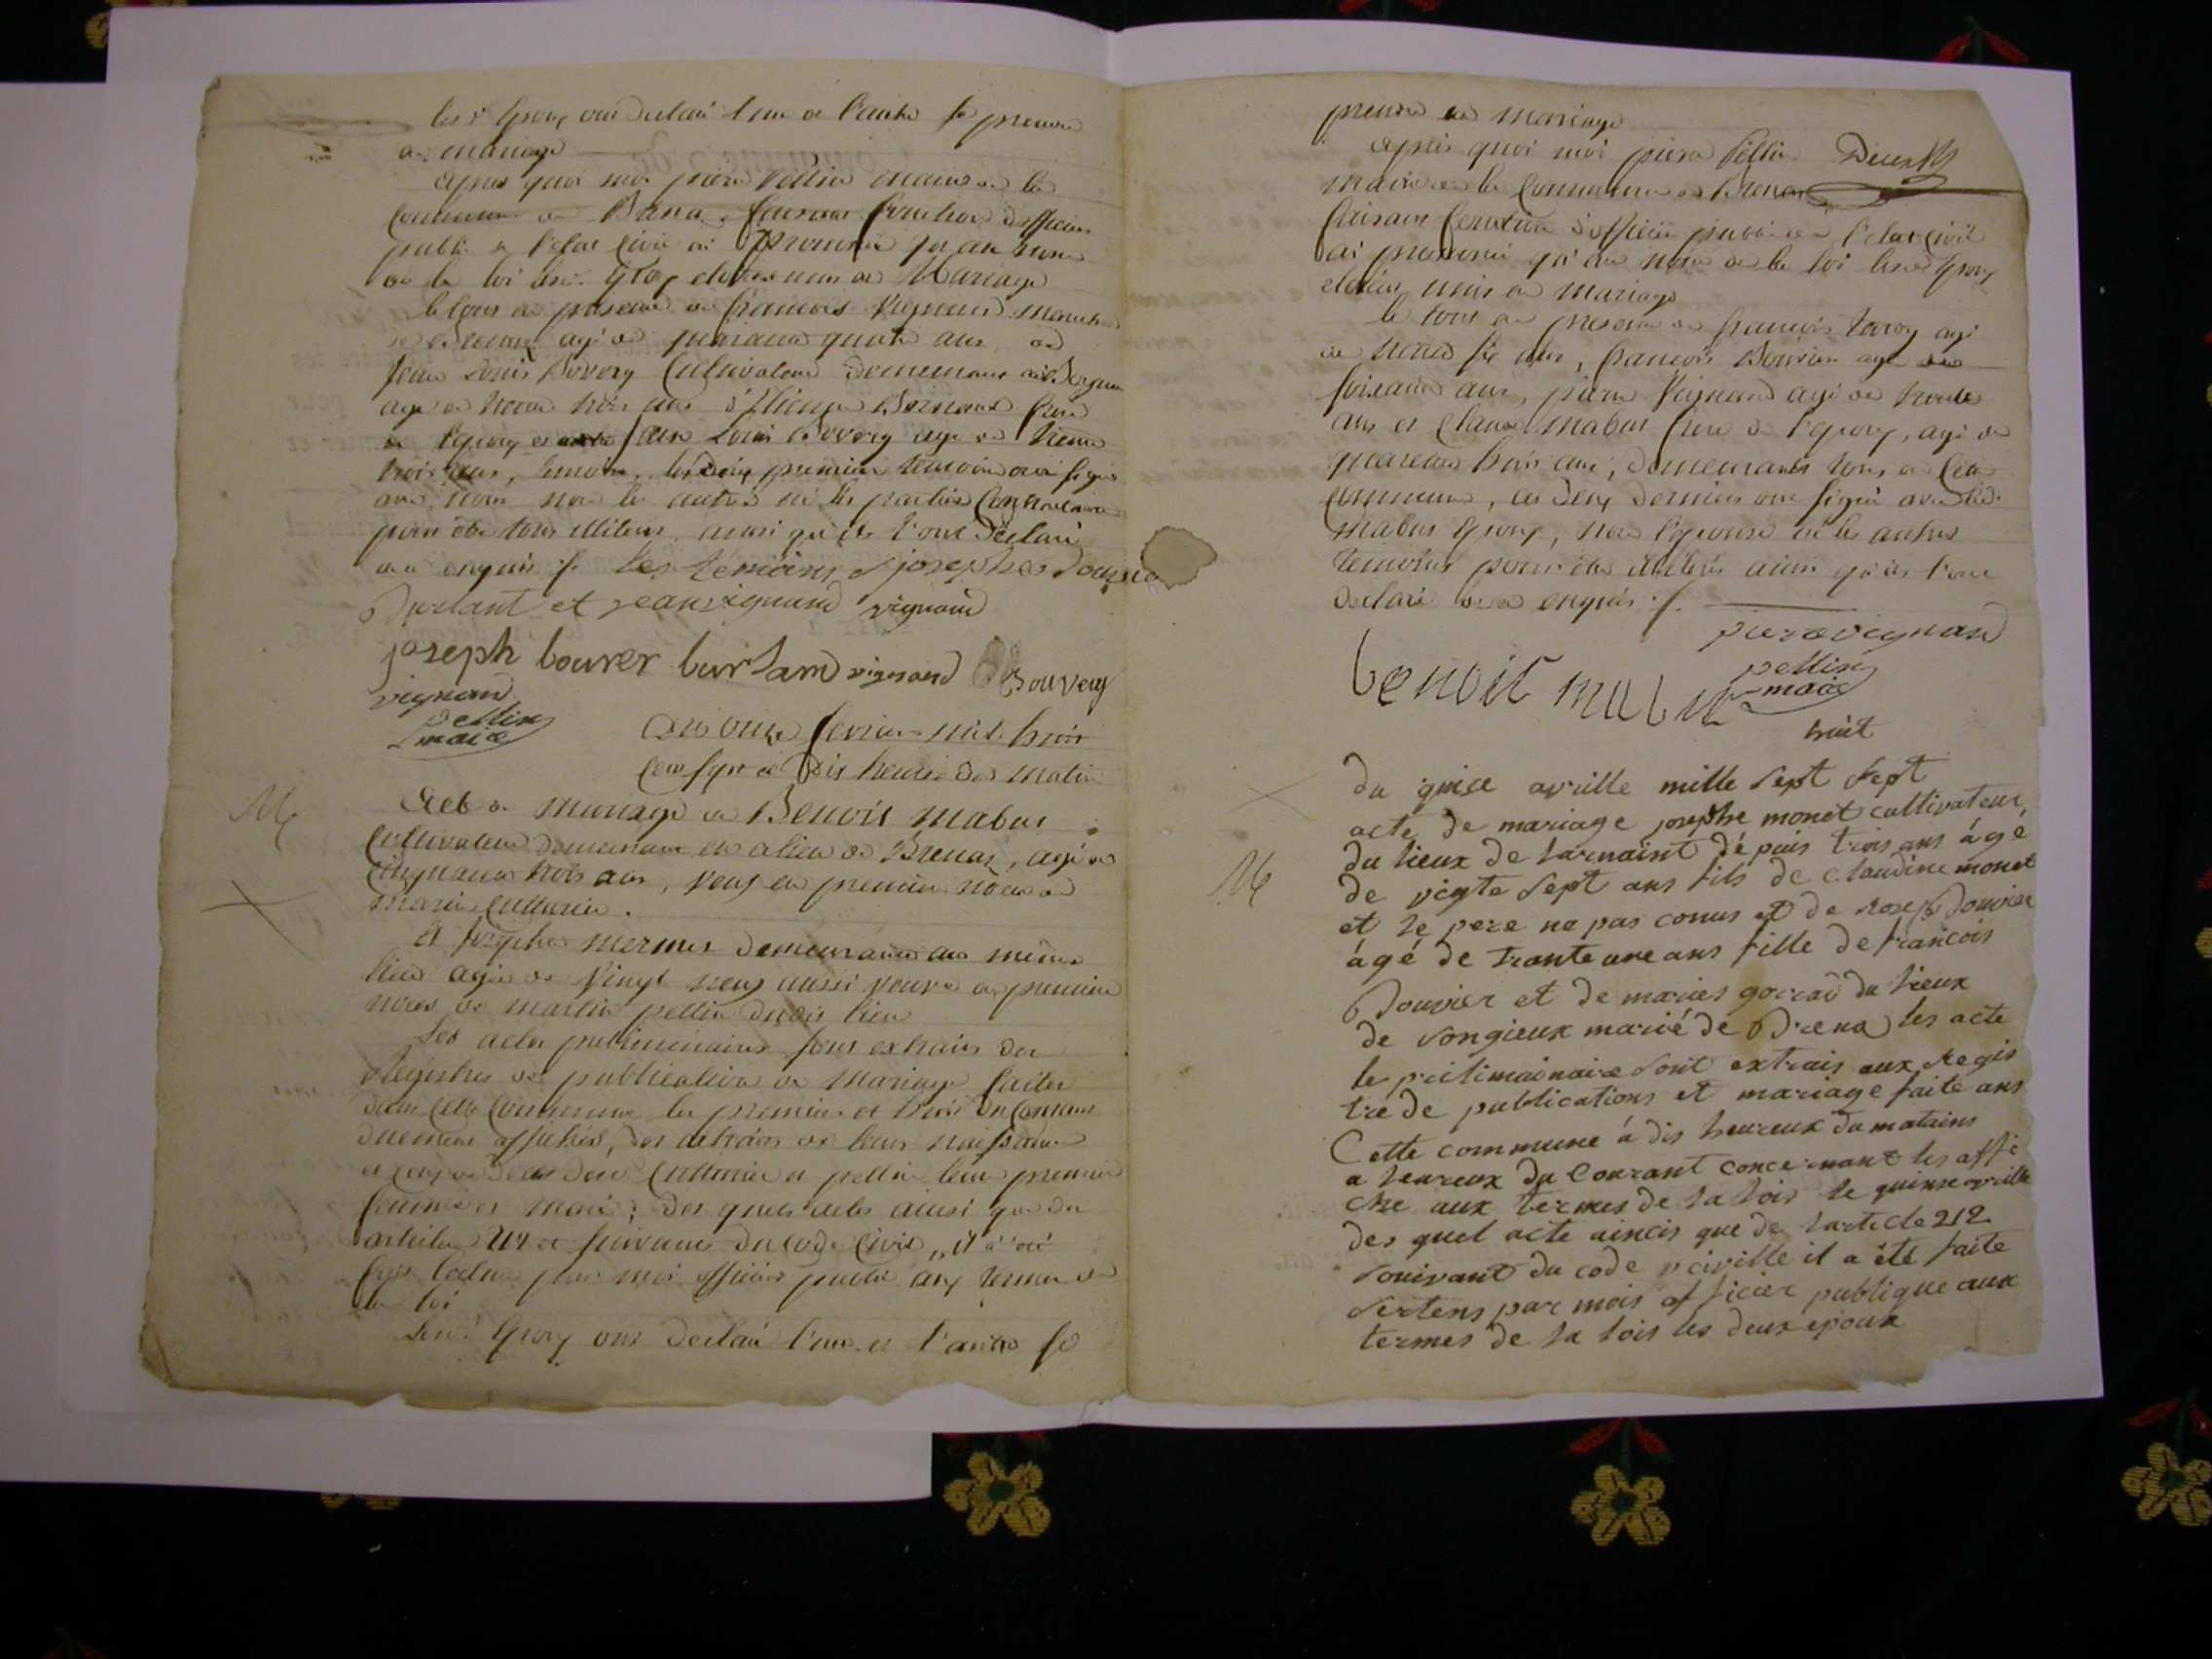 les d. Epoux ont declaré l'un et l'autre se prendre
en mariage
apres quoi moi pierre Pellin maire de la
Commune de Brena, faisant fonction d'officier
public de l'etat Civil ai prononcé qu'au nom
de la loi les d. Epoux etoient unis en Mariage
le tout en presence de francois Vignand
agé de quarante quatre ans, de
Jean Louis Bovery Cultivateur demeurant
agé de trente trois ans
de l'epoux et Jean Louis Bovery agé de trente
trois ans, temoins, les deux premiers temoins ont signé
avec nous non les autres ni les parties Contractantes
pour etre tous illiteres ainsi qu'ils l'ont déclaré
de ce enquis ./. Les témoins josephes Bouvier
Burlant et jean vignand vignand
joseph bouver burland vignand Bouvery
vignand
pellin
maire
du onze fevrier mil huit
cent sept à Dix heures du matin
M
Acte de mariage de Benoit mabus
Cultivateur demeurant en ce lieu de Brenas, agé de
Cinquante trois ans, veuf en premiere nôce de
marie Cutturier.
Et Josephes mermes demeurante au même
lieu agée de Vingt neuf aussi veuve en premiere
noces de martin pellin du dit lieu
Les actes preliminaires sont extraits des
Registres de publication de Mariage faites
dans Cette Commune les premier et huit du Courant
duement affichés, des extraits de leurs naissances
et Ceux de deces des d. Cutturier et pellin leur premier
femme et mari; des quels actes ainsi que des
articles 212 et suivants du Code Civil, il a eté
fait lecture par moi officier public aux termes de
la loi
Les d. Epoux ont declaré l'un et l'autre se
prendre en mariage
apres quoi moi pierre Pellin
maire de la Commune de Brenas
faisant fonction d'officier public de l'etat Civil
ai prononcé qu'au nom de la loi les d. Epoux
etoient unis en mariage
le tout en presence de francois agé
de trente six ans, francois Bouvier agé de
soixante ans, pierre Vignand agé de trente
ans et Claude mabus frere de l'Epoux, agé de
quarante huit ans, demeurants tous en Cette
Commune, les deux derniers ont signé avec led.
mabus Epoux, non l'epouse ni les autres
temoins pour être illiterés ainsi qu'ils l'ont
declaré de ce enquis ./.
pierre vignand
benoit mabus
pellin
maire
huit
du quise avrille mille sept sept
acte de mariage josephe monet cultivateur
M
du lieux de larnaint dé puis trois ans ágé
de vigte sept ans fils de claudine monet
et le pere ne pas conus et de Bouvier
ágé de trante une ans fille de francois
Bouvier et de maries gorraö du lieux
de songieux marié de Brena les acte
le prélimainaire sont extrais aux Regis
tre de publications et mariage faite ans
Cette commune á dis heureux du matains
a heureux du Courant concernant les affi
che aux termes de la lois le quinse avrille
des quel acte aincis que de l'article 212
souivant du code civille il a été faite
par mois officier publique aux
termes de la lois les deux époux